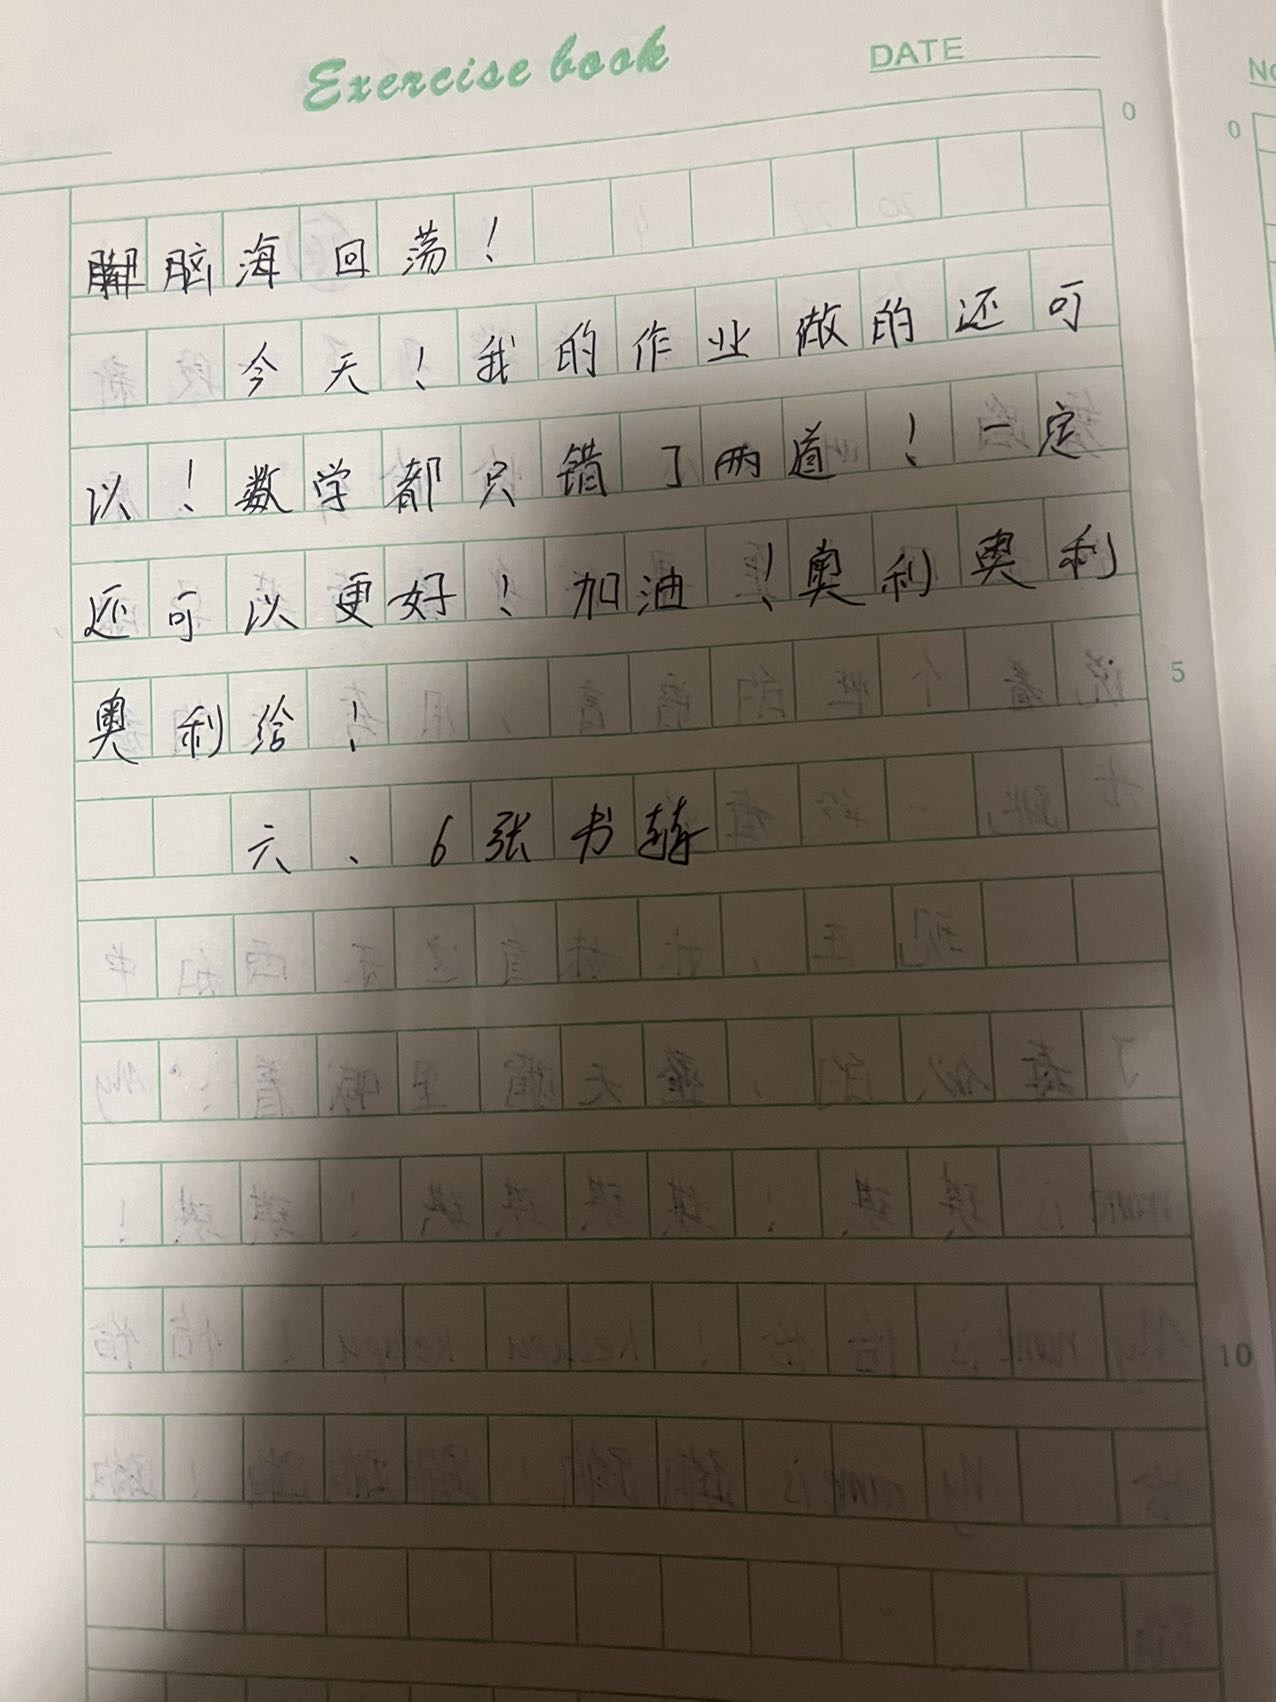 Exercise book
DATE
No
0
0
脑海回荡！
今天！我的作业做的还可
以！数学都只错了两道！一定
还可以更好！加油！奥利奥利
奥利给！
5
六、6张书
10